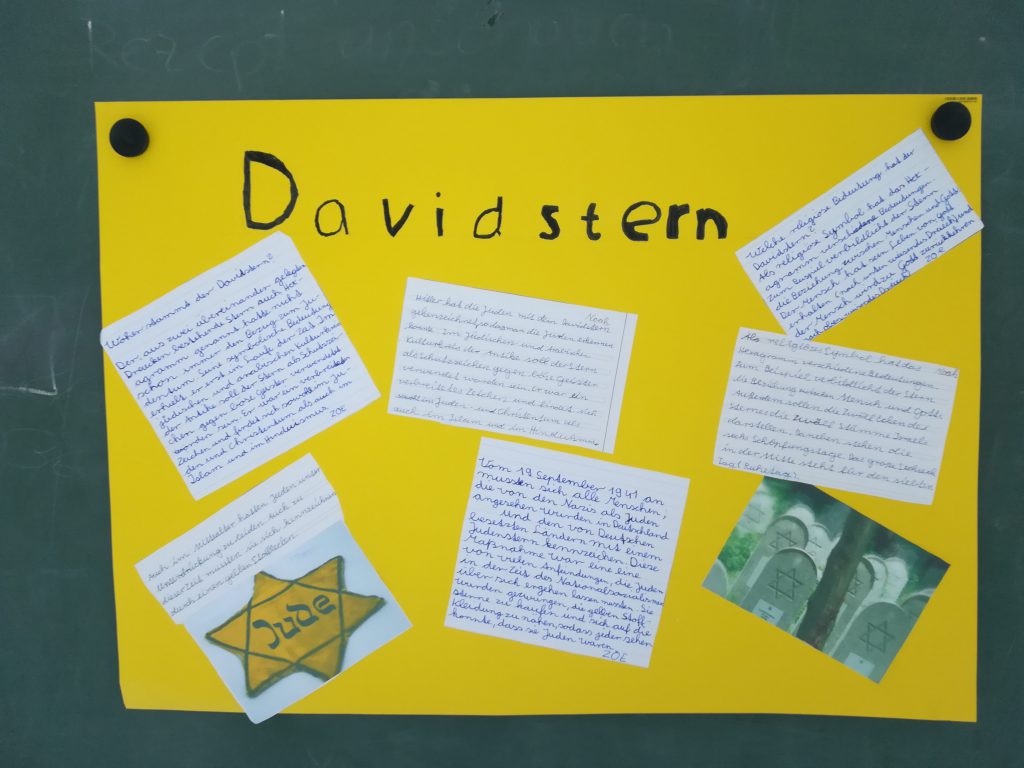 Rezept
Davidstern
Woher stammt der Davidstern?
Der, aus zwei übereinander gelegten
Dreiecken bestehende Stern auch Hex-
agramm genannt hatte nicht
schon immer den Bezug zum Ju-
dentum. Seine symbolische Bedeutung
erhielt er erst im Laufe der Zeit. Im
jüdischen und arabischen Kulturkreis
der Antike soll der Stern als Schutzzei-
chen gegen böse Geister verwendet
worden sein. Er war ein verbreitetes
Zeichen und findet sich sowohl im Ju-
den und Christentum als auch im
Islam und im Hinduismus.
ZOE
Noah
Hitler hat die Juden mit dem Davidstern
gekennzeichnet, sodas man die Juden erkennen
konnte. Im jüdischen und arabischen
Kulturkreis der Antike soll der Stern
als Schutzzeichen gegen böse Geister
verwendet worden sein. Er war ein
verbreitetes Zeichen und findet sich
sowohl im Juden- und Christentum als
auch im Islam und im Hinduismus
Welche religiöse Bedeutung hat der
Davidstern?
Als religiöse Symbol hat das Hex-
agramm verschiedene Bedeutungen
zum Beispiel verbildlicht der Stern
die Beziehung zwischen Menschen und Gott.
Der Mensch hat sein Leben von Gott
erhalten (nach unten weisendes Dreieck) und
der Mensch wird zu Gott zurückkehren
(nach oben weisendes Dreieck)
ZOE
Als religiöses Symbol hat das
Noah
Hexagramm verschiedene Bedeutungen
zum Beispiel verbildlicht der Stern
die Beziehung zwischen Mensch und Gott.
Außerdem sollen die zwölf Ecken des
Sternes die zwölf Stämme Israels
darstellen. Daneben stehen die
sechs Schöpfungstage. Das große Sechseck
in der Mitte steht für den siebten
Tag (Ruhetag).
Auch im Mittelalter hatten Juden unter
Unterdrückung zu leiden auch zu
dieser Zeit mussten sie sich kennzeichnen
durch einen gelben
Jude
Vom 19 September 1941 an
mussten sich alle Menschen,
die von den Nazis als Juden
angesehen wurden in Deutschland
und den von Deutschen
besetzten Ländern mit einem
Judenstern kennzeichen. Diese
Maßnahme war eine eine
von vielen Anfindungen, die Juden
in der Zeit des Nationalsozialismus
über sich ergehen lassen mussten. Sie
wurden gezwungen, die gelben Stoff-
sterne zu kaufen und sich auf die
Kleidung zu nähen, sodass jeder sehen
konnte, dass sie Juden waren.
ZOE